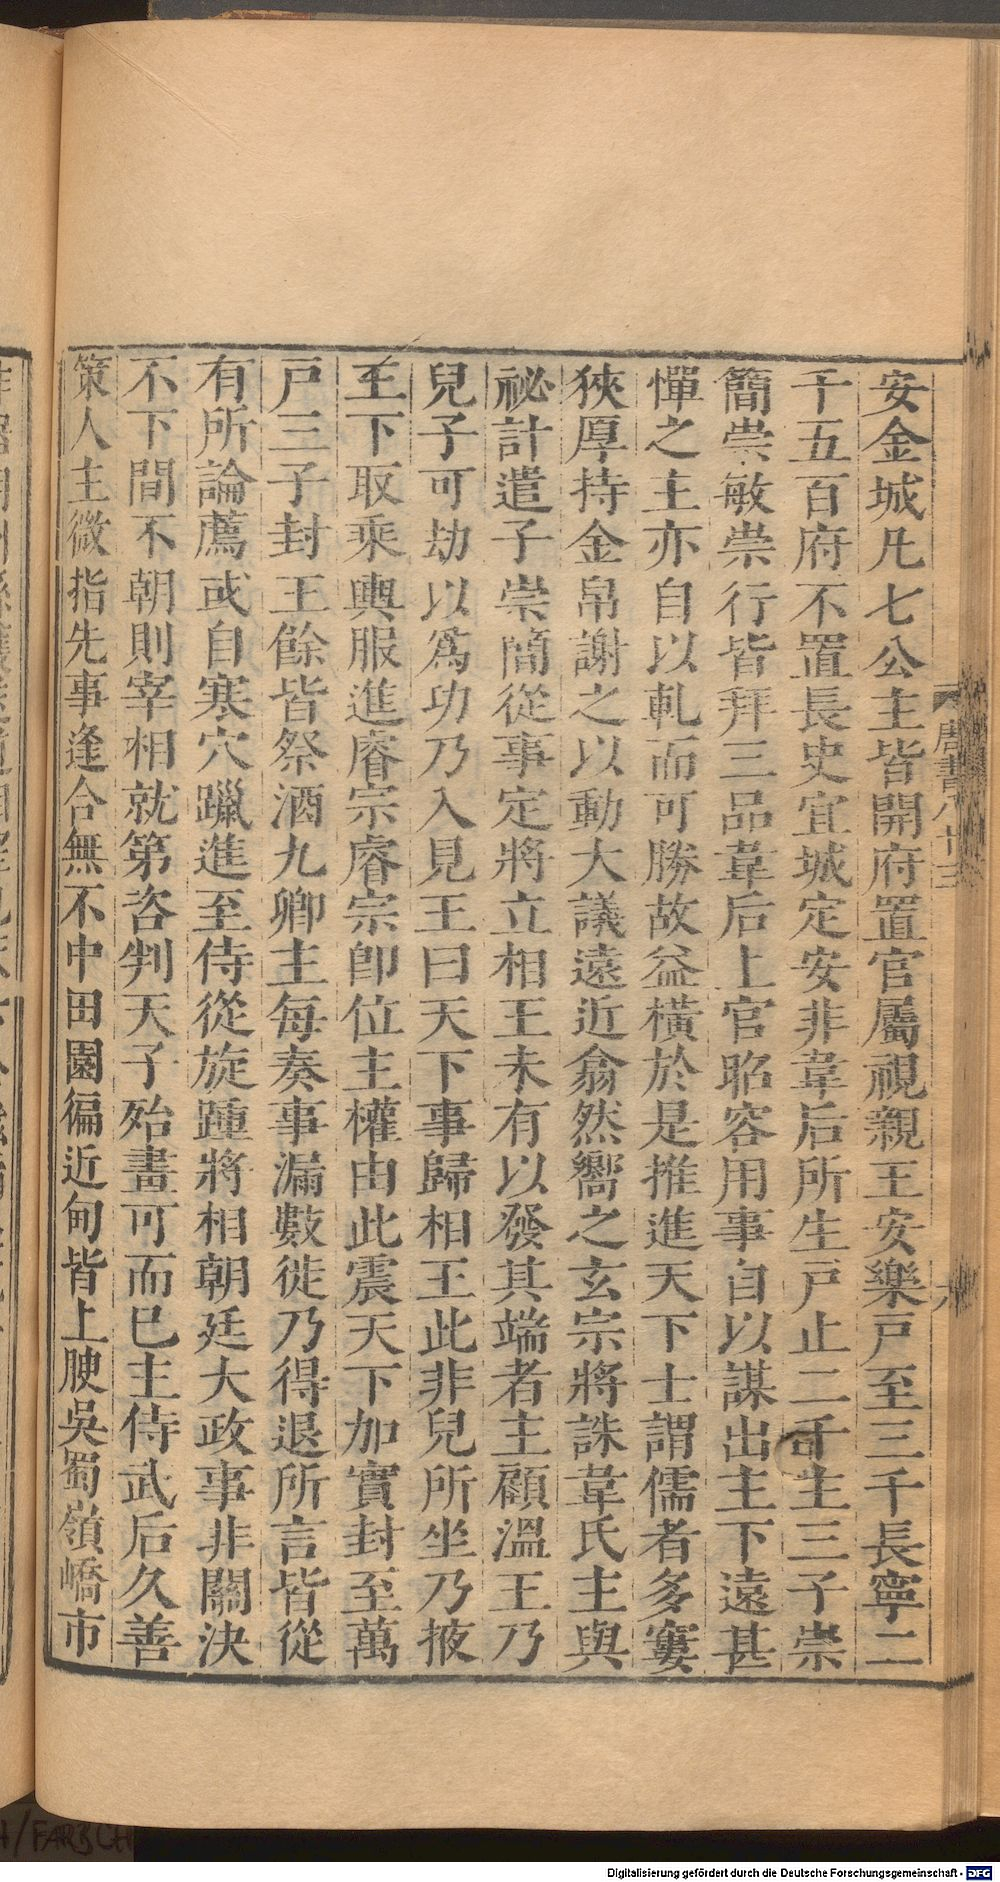 安金城凡七公主皆開府置官屬視親王安樂戸至三千長寧二
千五百府不置長史宜城定安非韋后所生戸止二千主三子崇
簡崇敏崇行皆拜三品韋后上官昭容用事自以謀出主下遠甚
憚之主亦自以軋而可勝故益橫於是推進天下士謂儒者多窶
狹厚持金帛謝之以動大議遠近翕然嚮之玄宗將誅韋氏主與
祕計遣子崇簡從事定將立相王未有以發其端者主顧溫王乃
兒子可劫以爲功乃入見王曰天下事歸相王此非兒所坐乃掖
王下取乘輿服進睿宗睿宗卽位主權由此震天下加實封至萬
戸三子封王餘皆祭酒九卿主每奏事漏數徙乃得退所言皆從
有所論薦或自寒穴躐進至侍從旋踵將相朝廷大政事非關決
不下間不朝則宰相就第咨判天子殆畫可而已主侍武后久善
策人主微指先事逢合無不中田園徧近甸皆上腴吳蜀嶺嶠市
唐書八十三
Digitalisierung gefördert durch die Deutsche Forschungsgemeinschaft - DFG